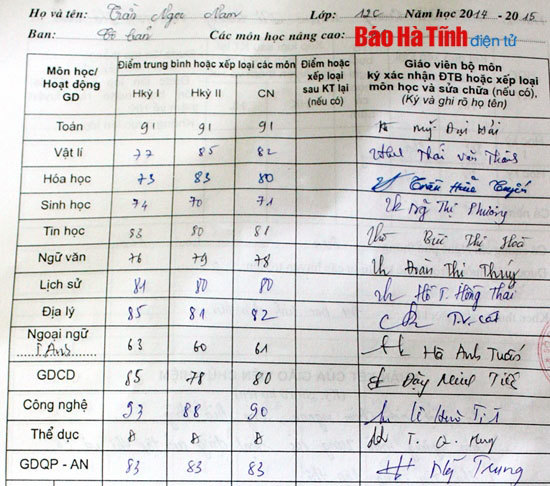 Họ và tên: Trần Ngọc Nam Lớp: 12C Năm học 2014 - 2015
Ban: Cơ bản Các môn học nâng cao: Báo Hà Tĩnh điện tử
Môn học/ Hoạt động GD
Điểm trung bình hoặc xếp loại các môn
Hkỳ I Hkỳ II CN
Điểm hoặc xếp loại sau KT lại (nếu có)
Giáo viên bộ môn ký xác nhận ĐTB hoặc xếp loại môn học và sửa chữa (nếu có).
(Ký và ghi rõ họ tên)
Toán 91 91 91
Vật lí 77 85 82 Thái Văn
Hóa học 75 83 80 Trần
Sinh học 74 70 71 Thị Phương
Tin học 83 80 81 Thị Hoa
Ngữ văn 76 79 78 Đoàn Thị Thúy
Lịch sử 81 80 80 Hồ T. Hồng Thái
Địa lý 85 81 82
Ngoại ngữ T Anh 63 60 61 Hà Anh Tuấn
GDCD 85 78 80
Công nghệ 93 88 90 Lê
Thể dục 8 8 8
GDQP - AN 83 83 83 Trung